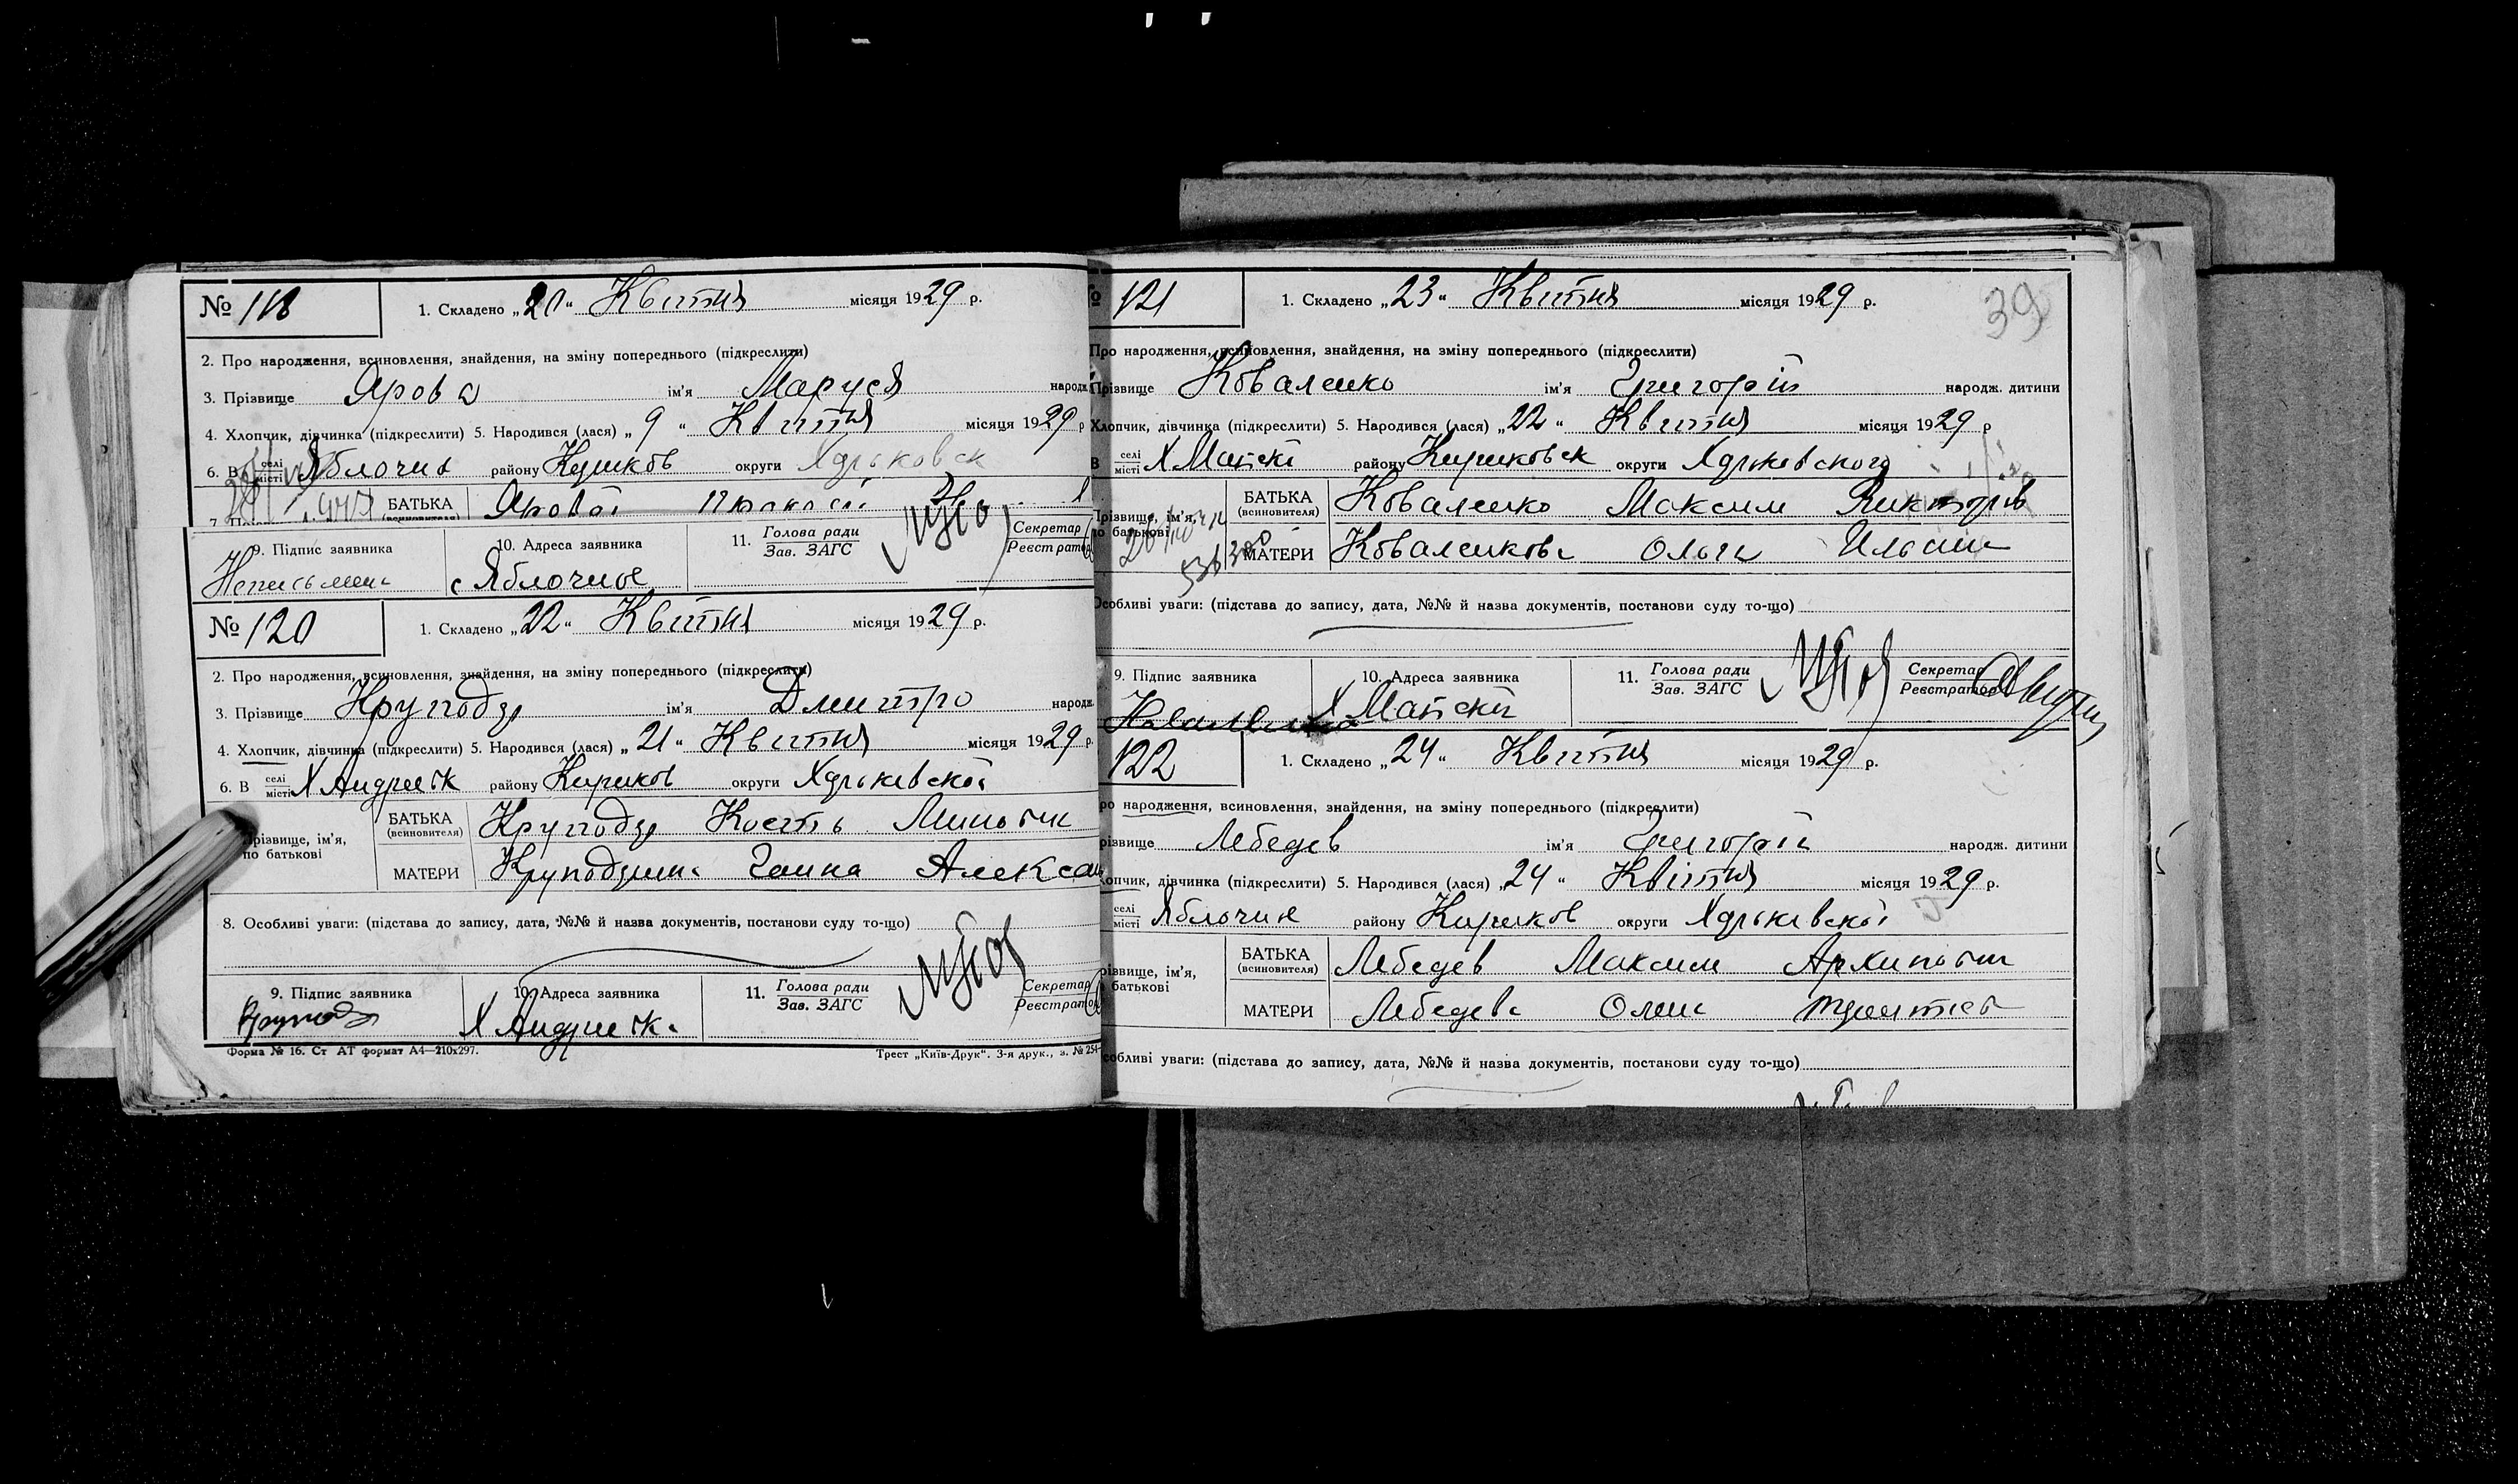 № 118
1. Складено „20“ Квітня місяця 1929 р.
2. Про народження, всиновлення, знайдення, на зміну попереднього (підкреслити)
3. Прізвище Ярова ім'я Маруся народж
4. Хлопчик, дівчинка (підкреслити) 5. Народився (лася) „9“ Квітня місяця 1929 р
6. В селі місті Яблочна району Кириков округи Харьковск
БАТЬКА (всиновителя) Яровой
9. Підпис заявника 10. Адреса заявника 11. Голова ради Зав. ЗАГС Секретар Реєстратор
с Яблочное
№ 120
1. Складено „22“ Квітня місяця 1929 р.
2. Про народження, всиновлення, знайдення, на зміну попереднього (підкреслити)
3. Прізвище ім'я Дмитро народж
4. Хлопчик, дівчинка (підкреслити) 5. Народився (лася) „21“ Квітня місяця 1929 р.
6. В селі місті Х району Кириков округи Харьківської
різвище, ім'я, по батькові
БАТЬКА (всиновителя) Кость
МАТЕРИ Ганна Алексан
8. Особливі уваги: (підстава до запису, дата, №№ й назва документів, постанови суду то-що)
9. Підпис заявника 10. Адреса заявника 11. Голова ради Зав. ЗАГС Секретар Реєстратор
Форма № 16. Ст АТ формат А4—210х297. Трест „Київ-Друк“. 3-я друк., з. № 254
39
№ 121
1. Складено „23“ Квітня місяця 1929 р.
Про народження, всиновлення, знайдення, на зміну попереднього (підкреслити)
Прізвище Коваленко ім'я Григорій народж. дитини
Хлопчик, дівчинка (підкреслити) 5. Народився (лася) „22“ Квітня місяця 1929 р
В селі місті Х Майскі району Кириковск округи Харьковского
Прізвище, ім'я, по батькові
БАТЬКА (всиновителя) Коваленко Максим Викторів
МАТЕРИ Коваленкова Ольга
Особливі уваги: (підстава до запису, дата, №№ й назва документів, постанови суду то-що)
9. Підпис заявника 10. Адреса заявника 11. Голова ради Зав. ЗАГС Секретар Реєстратор
Х Майскій
122
1. Складено „24“ Квітня місяця 1929 р.
ро народження, всиновлення, знайдення, на зміну попереднього (підкреслити)
різвище Лебедев ім'я Григорій народж. дитини
опчик, дівчинка (підкреслити) 5. Народився (лася) „24“ Квітня місяця 1929 р.
селі місті Яблочна району Кириков округи Харьківської
різвище, ім'я, батькові
БАТЬКА (всиновителя) Лебедев Максим Архипович
МАТЕРИ Лебедева Олена
собливі уваги: (підстава до запису, дата, №№ й назва документів, постанови суду то-що)